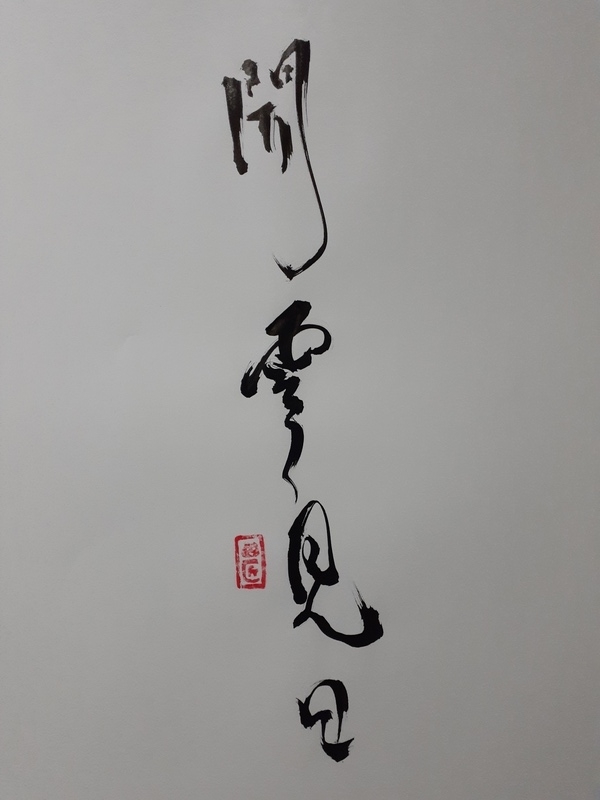 開雲見日